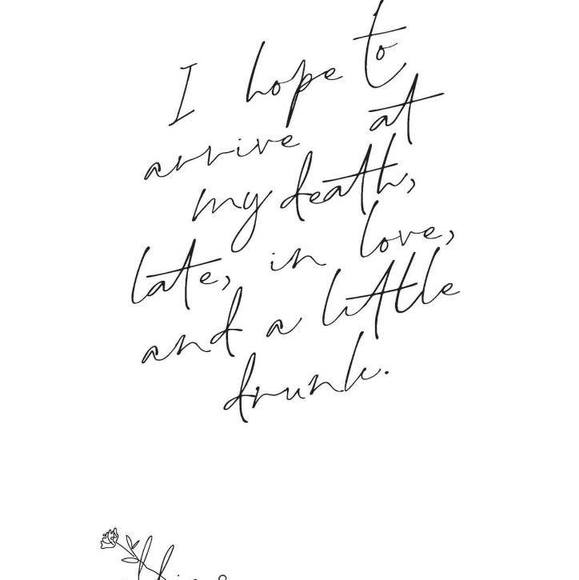 I hope to
arrive at
my death,
late, in love,
and a little
drunk.